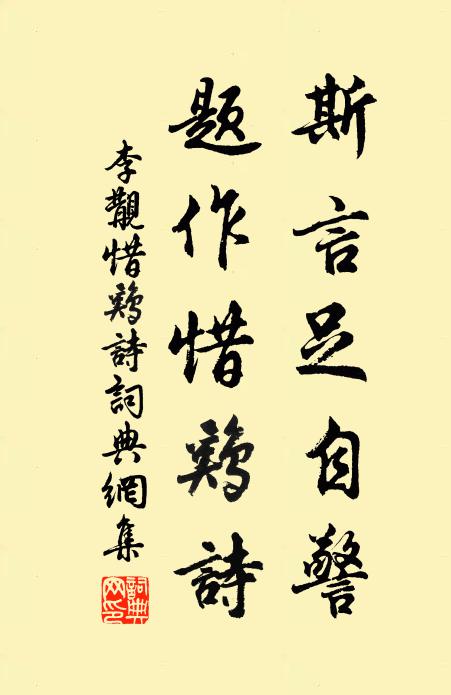 斯言足自警
題作惜鷄詩
李覯惜鷄詩詞典網集
詞典网印